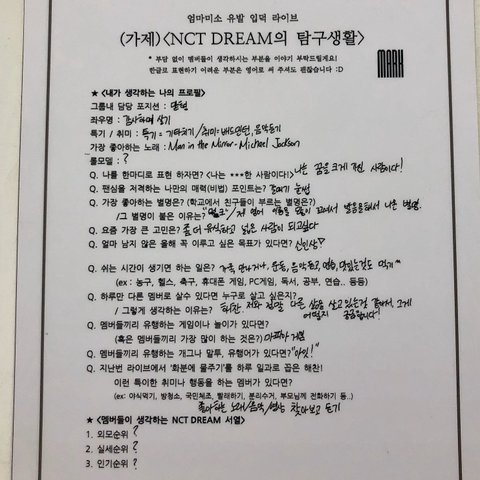 엄마미소 유발 입덕 라이브
(가제)<NCT DREAM의 탐구생활>
* 부담 없이 멤버들이 생각하시는 부분을 이야기 부탁드릴게요!
한글로 표현하기 어려운 부분은 영어로 써 주셔도 괜찮습니다 :D
MARK
★ <내가 생각하는 나의 프로필>
그룹내 담당 포지션 : 맏형
좌우명 : 감사하며 살기
특기 / 취미 : 특기 = 기타치기 / 취미 = 배드민턴, 음악듣기
가장 좋아하는 노래 : Man in the Mirror - Michael Jackson
롤모델 : ?
Q. 나를 한마디로 표현 하자면? <나는 ***한 사람이다!> 나는 꿈을 크게 가진 사람이다!
Q. 팬심을 저격하는 나만의 매력(비법) 포인트는? 갈매기 눈썹
Q. 가장 좋아하는 별명은? (학교에서 친구들이 부르는 별명은?)
/그 별명이 붙은 이유는? "멀크" / 제 영어 이름을 발음을 해서 나온 별명.
Q. 요즘 가장 큰 고민은? 좀 더 유식하고 넓은 사람이 되고싶다
Q. 얼마 남지 않은 올해 꼭 이루고 싶은 목표가 있다면? 신인상!
Q. 쉬는 시간이 생기면 하는 일은? 가족 만나거나, 운동, 음악듣고, 영화, 맛있는것도 먹기^^
(ex : 농구, 헬스, 축구, 휴대폰 게임, PC게임, 독서, 공부, 연습.. 등등)
Q. 하루만 다른 멤버로 살수 있다면 누구로 살고 싶은지?
/ 그렇게 생각하는 이유는? 저와 정말 다른 삶을 살고 있는것 같아서, 그게
어떨지 궁금합니다!
Q. 멤버들끼리 유행하는 게임이나 놀이가 있다면?
(혹은 멤버들끼리 가장 많이 하는 것은?) 마피아 게임
Q. 멤버들끼리 유행하는 개그나 말투, 유행어가 있다면? "아잇!"
Q. 지난번 라이브에서 '화분에 물주기'를 하루 일과로 꼽은 해찬!
이런 특이한 취미나 행동을 하는 멤버가 있다면?
(ex: 야식먹기, 방청소, 국민체조, 빨래하기, 분리수거, 부모님께 전화하기 등..)
좋아하는 노래/음악 찾아보고 듣기
★ <멤버들이 생각하는 NCT DREAM 서열>
1. 외모순위 ?
2. 실세순위 ?
3. 인기순위 ?